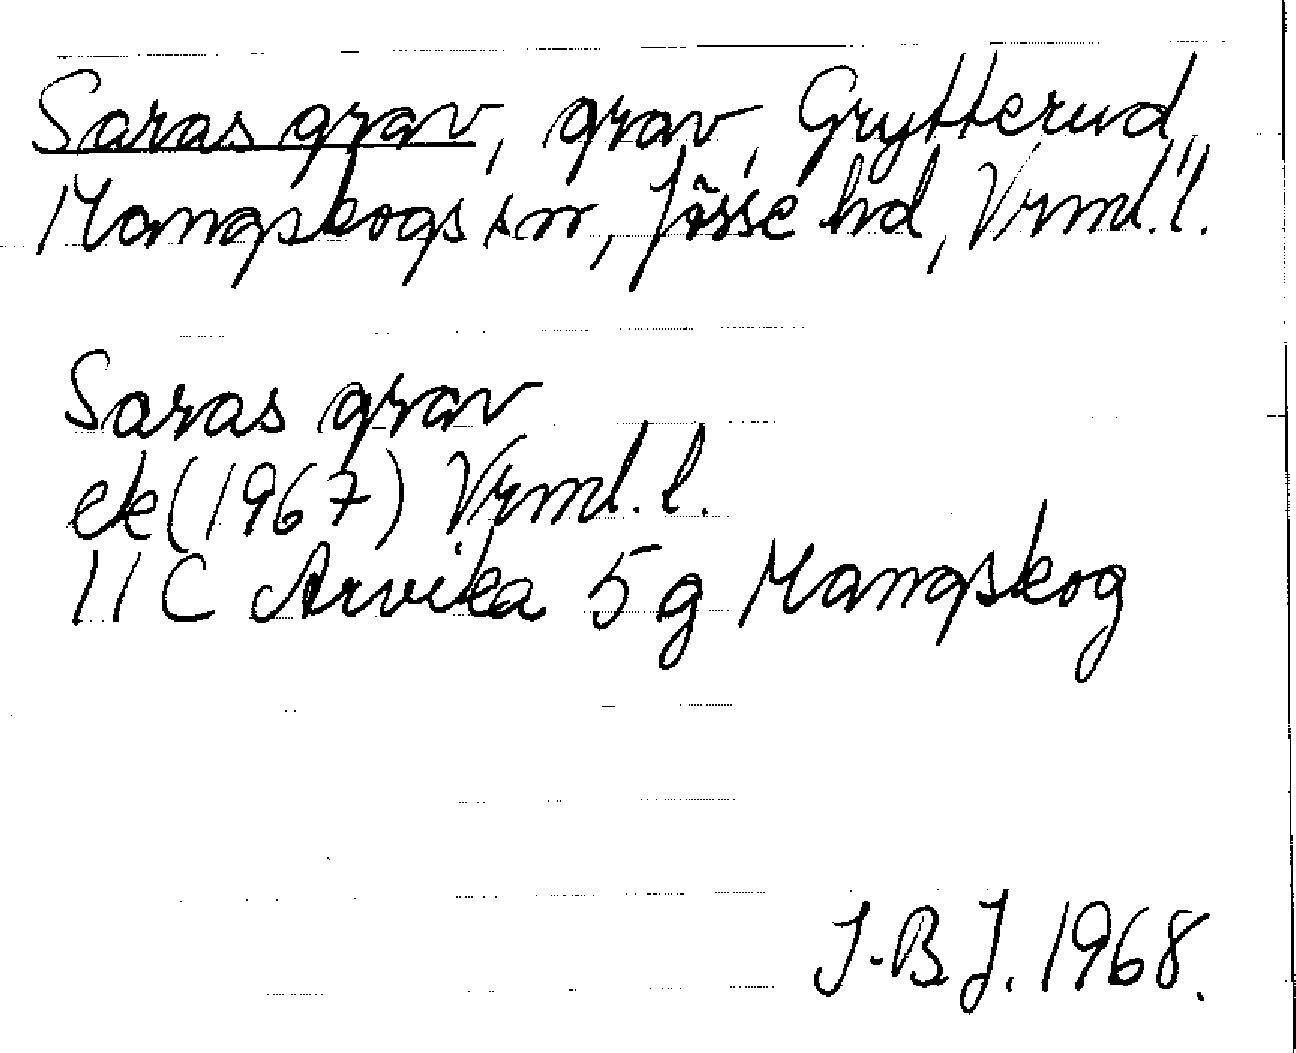 Saras grav, grav, Grytterud,
Mangskogs sn, Jösse hd, Vrml.l.
Saras grav
ek (1967) Vrml.l.
11C Arvika 5g Mangskog
I-B.J. 1968.